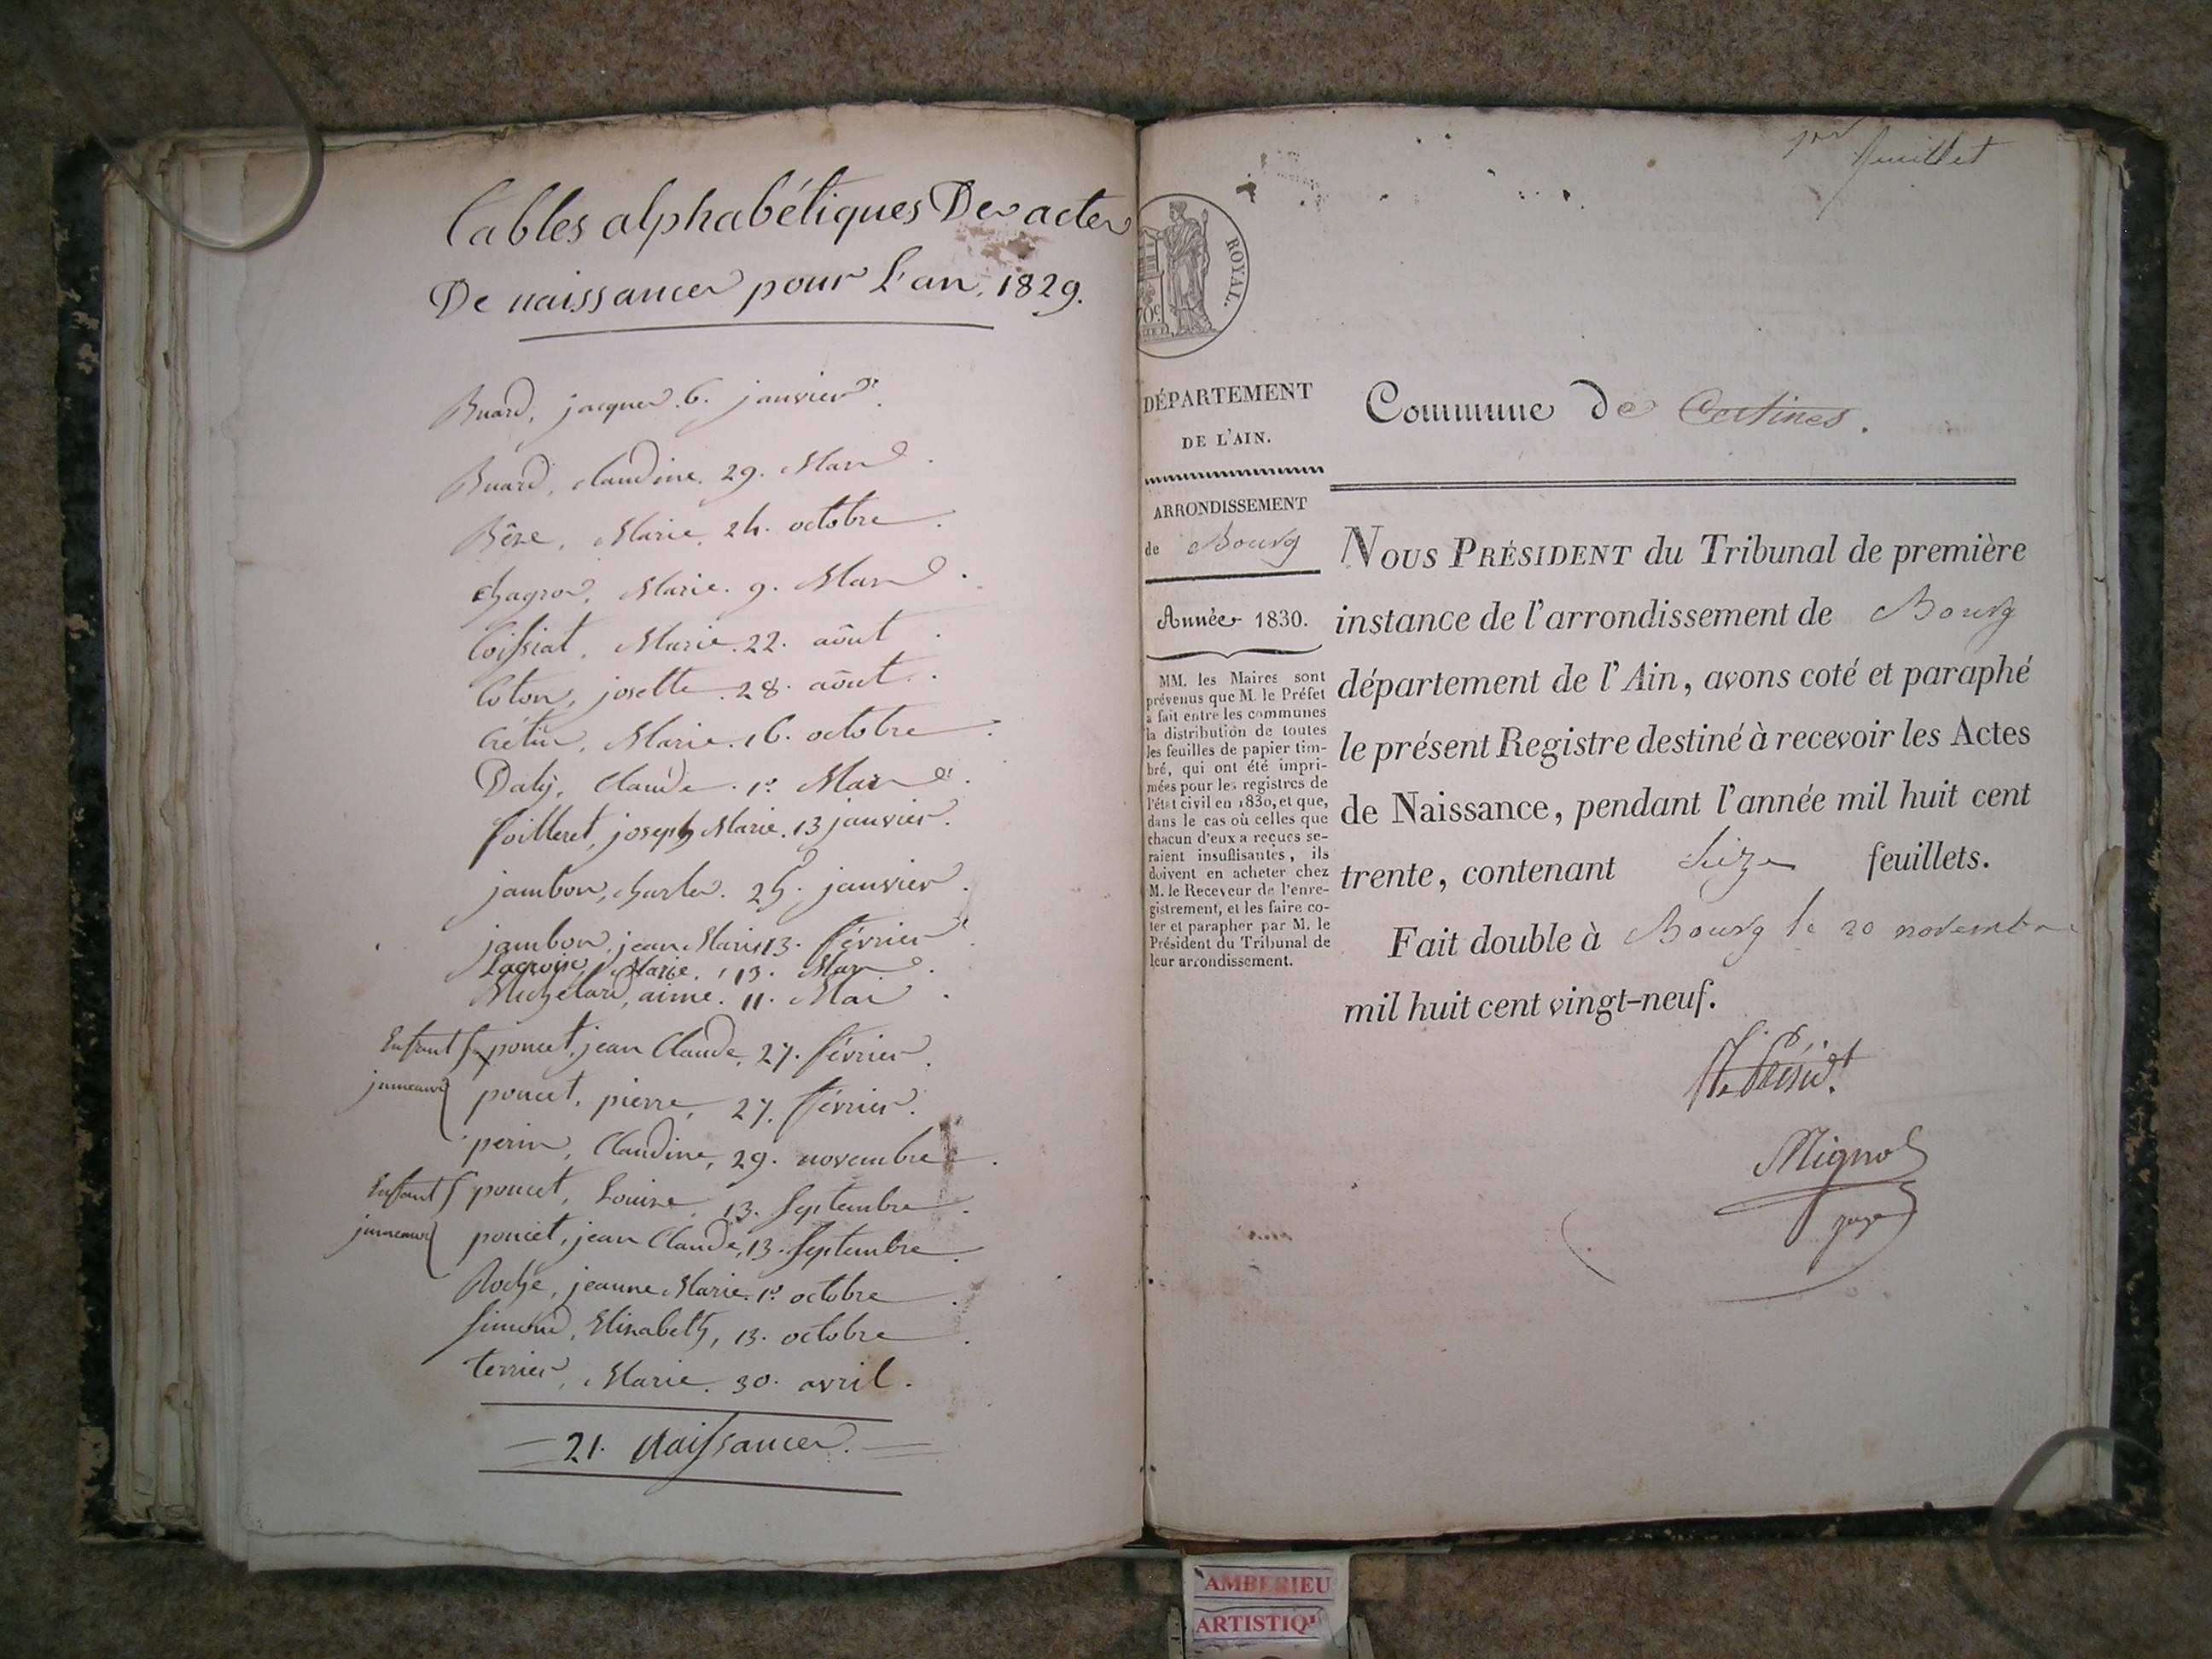 Tables alphabétiques Des actes
De naissances pour L'an 1829.
Buard, jacques. 6. janvier.
Buard, claudine. 29. Mars.
Bêre, Marie, 24. octobre.
chagros, Marie. 9. Mars.
Coissiat, Marie. 22. août.
Coton, josette. 28. août.
Crétin, Marie. 16. octobre.
Daly, Claude. 1er Mars.
foilleret, joseph Marie. 13 janvier.
jambon, charles. 25. janvier.
jambon, jean Marie 13. février.
Lacroix, Marie, 13. Mars.
Michelard, aimé. 11. Mai.
Enfants poncet, jean Claude, 27. février.
jumeaux poncet, pierre, 27. février.
perin, Claudine, 29. novembre.
Enfants poncet, Louise, 13. Septembre.
jumeaux poncet, jean Claude, 13. Septembre.
Roche, jeanne Marie. 1er octobre.
Simond, Elisabeth, 13. octobre.
terrier, Marie. 30. avril.
21. Naissances.
1er feuillet
ROYAL.
70c
DÉPARTEMENT
DE L'AIN.
ARRONDISSEMENT
de Bourg
Année 1830.
MM. les Maires sont
prévenus que M. le Préfet
a fait entre les communes
la distribution de toutes
les feuilles de papier tim-
bré, qui ont été impri-
mées pour les registres de
l'état civil en 1830, et que,
dans le cas où celles que
chacun d'eux a reçues se-
raient insuffisantes, ils
doivent en acheter chez
M. le Receveur de l'enre-
gistrement, et les faire co-
ter et parapher par M. le
Président du Tribunal de
leur arrondissement.
Commune de Certines.
NOUS PRÉSIDENT du Tribunal de première
instance de l'arrondissement de Bourg
département de l'Ain, avons coté et paraphé
le présent Registre destiné à recevoir les Actes
de Naissance, pendant l'année mil huit cent
trente, contenant Seize feuillets.
Fait double à Bourg le 20 novembre
mil huit cent vingt-neuf.
Pr. le Présidt.
Mignot
juge
AMBERIEU
ARTISTIQU